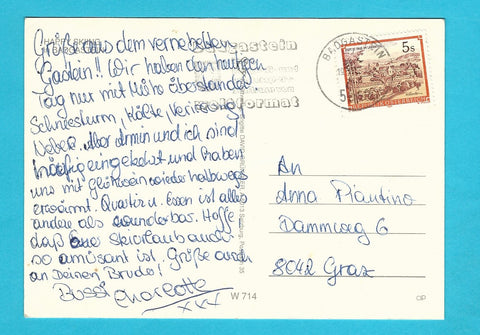 HAPPY SKIING
Grüße aus dem vernebelten
Gastein!! Wir haben den heutigen
Tag nur mit Mühe überstanden
Schneesturm, Kälte,
Nebel. Aber Armin und ich sind
häufig eingekehrt und haben
uns mit Glühwein wieder halbwegs
erwärmt. Quartier u. Essen ist alles
andere als wunderbar. Hoffe
daß Euer Skiurlaub auch
so amüsant ist. Grüße auch
an Deinen Bruder!
Bussi Charlotte
xxx
Badgastein
Weltformat
BADGASTEIN
5s
REPUBLIK ÖSTERREICH
An
Anna Piantino
Dammweg 6
8042 Graz
W 714
CP